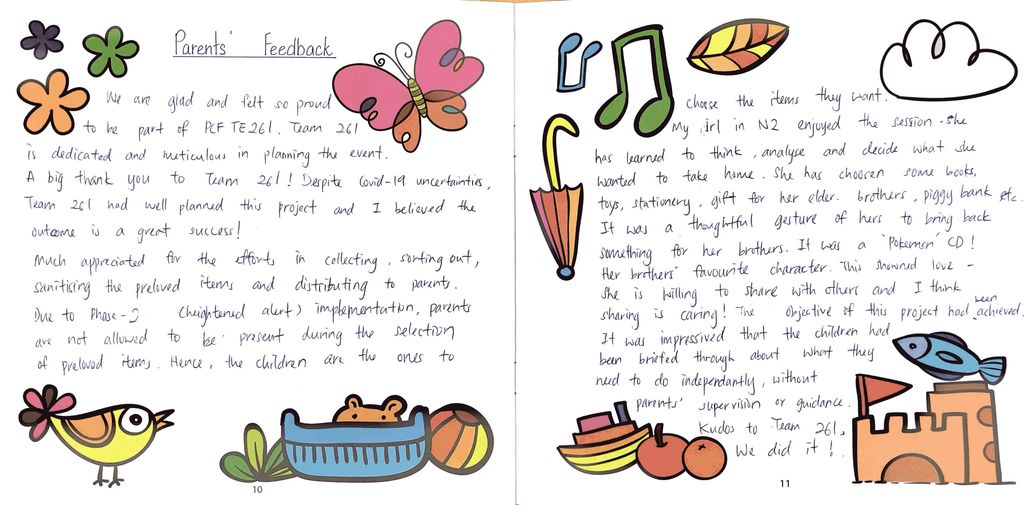 Parents' Feedback
We are glad and felt so proud
to be part of PCF TE261. Team 261
is dedicated and meticulous in planning the event.
A big thank you to Team 261! Despite Covid-19 uncertainties,
Team 261 had well planned this project and I believed the
outcome is a great success!
Much appreciated for the efforts in collecting, sorting out,
sanitising the preloved items and distributing to parent.
Due to Phase-2 (heightened alert) implementation, parents
are not allowed to be present during the selection
of preloved items. Hence, the children are the ones to
10
choose the items they want.
My girl in N2 enjoyed the session. She
has learned to think, analyse and decide what she
wanted to take home. She has choosen some books,
toys, stationery, gift for her elder brothers, piggy bank etc.
It was a thoughtful gesture of hers to bring back
something for her brothers. It was a 'Pokemon' CD!
Her brothers' favourite character. This showned love -
she is willing to share with others and I think
sharing is caring! The objective of this project had been achieved.
It was impressived that the children had
been briefed through about what they
need to do independantly, without
parents' supervision or guidance.
Kudos to Team 261,
We did it!
11